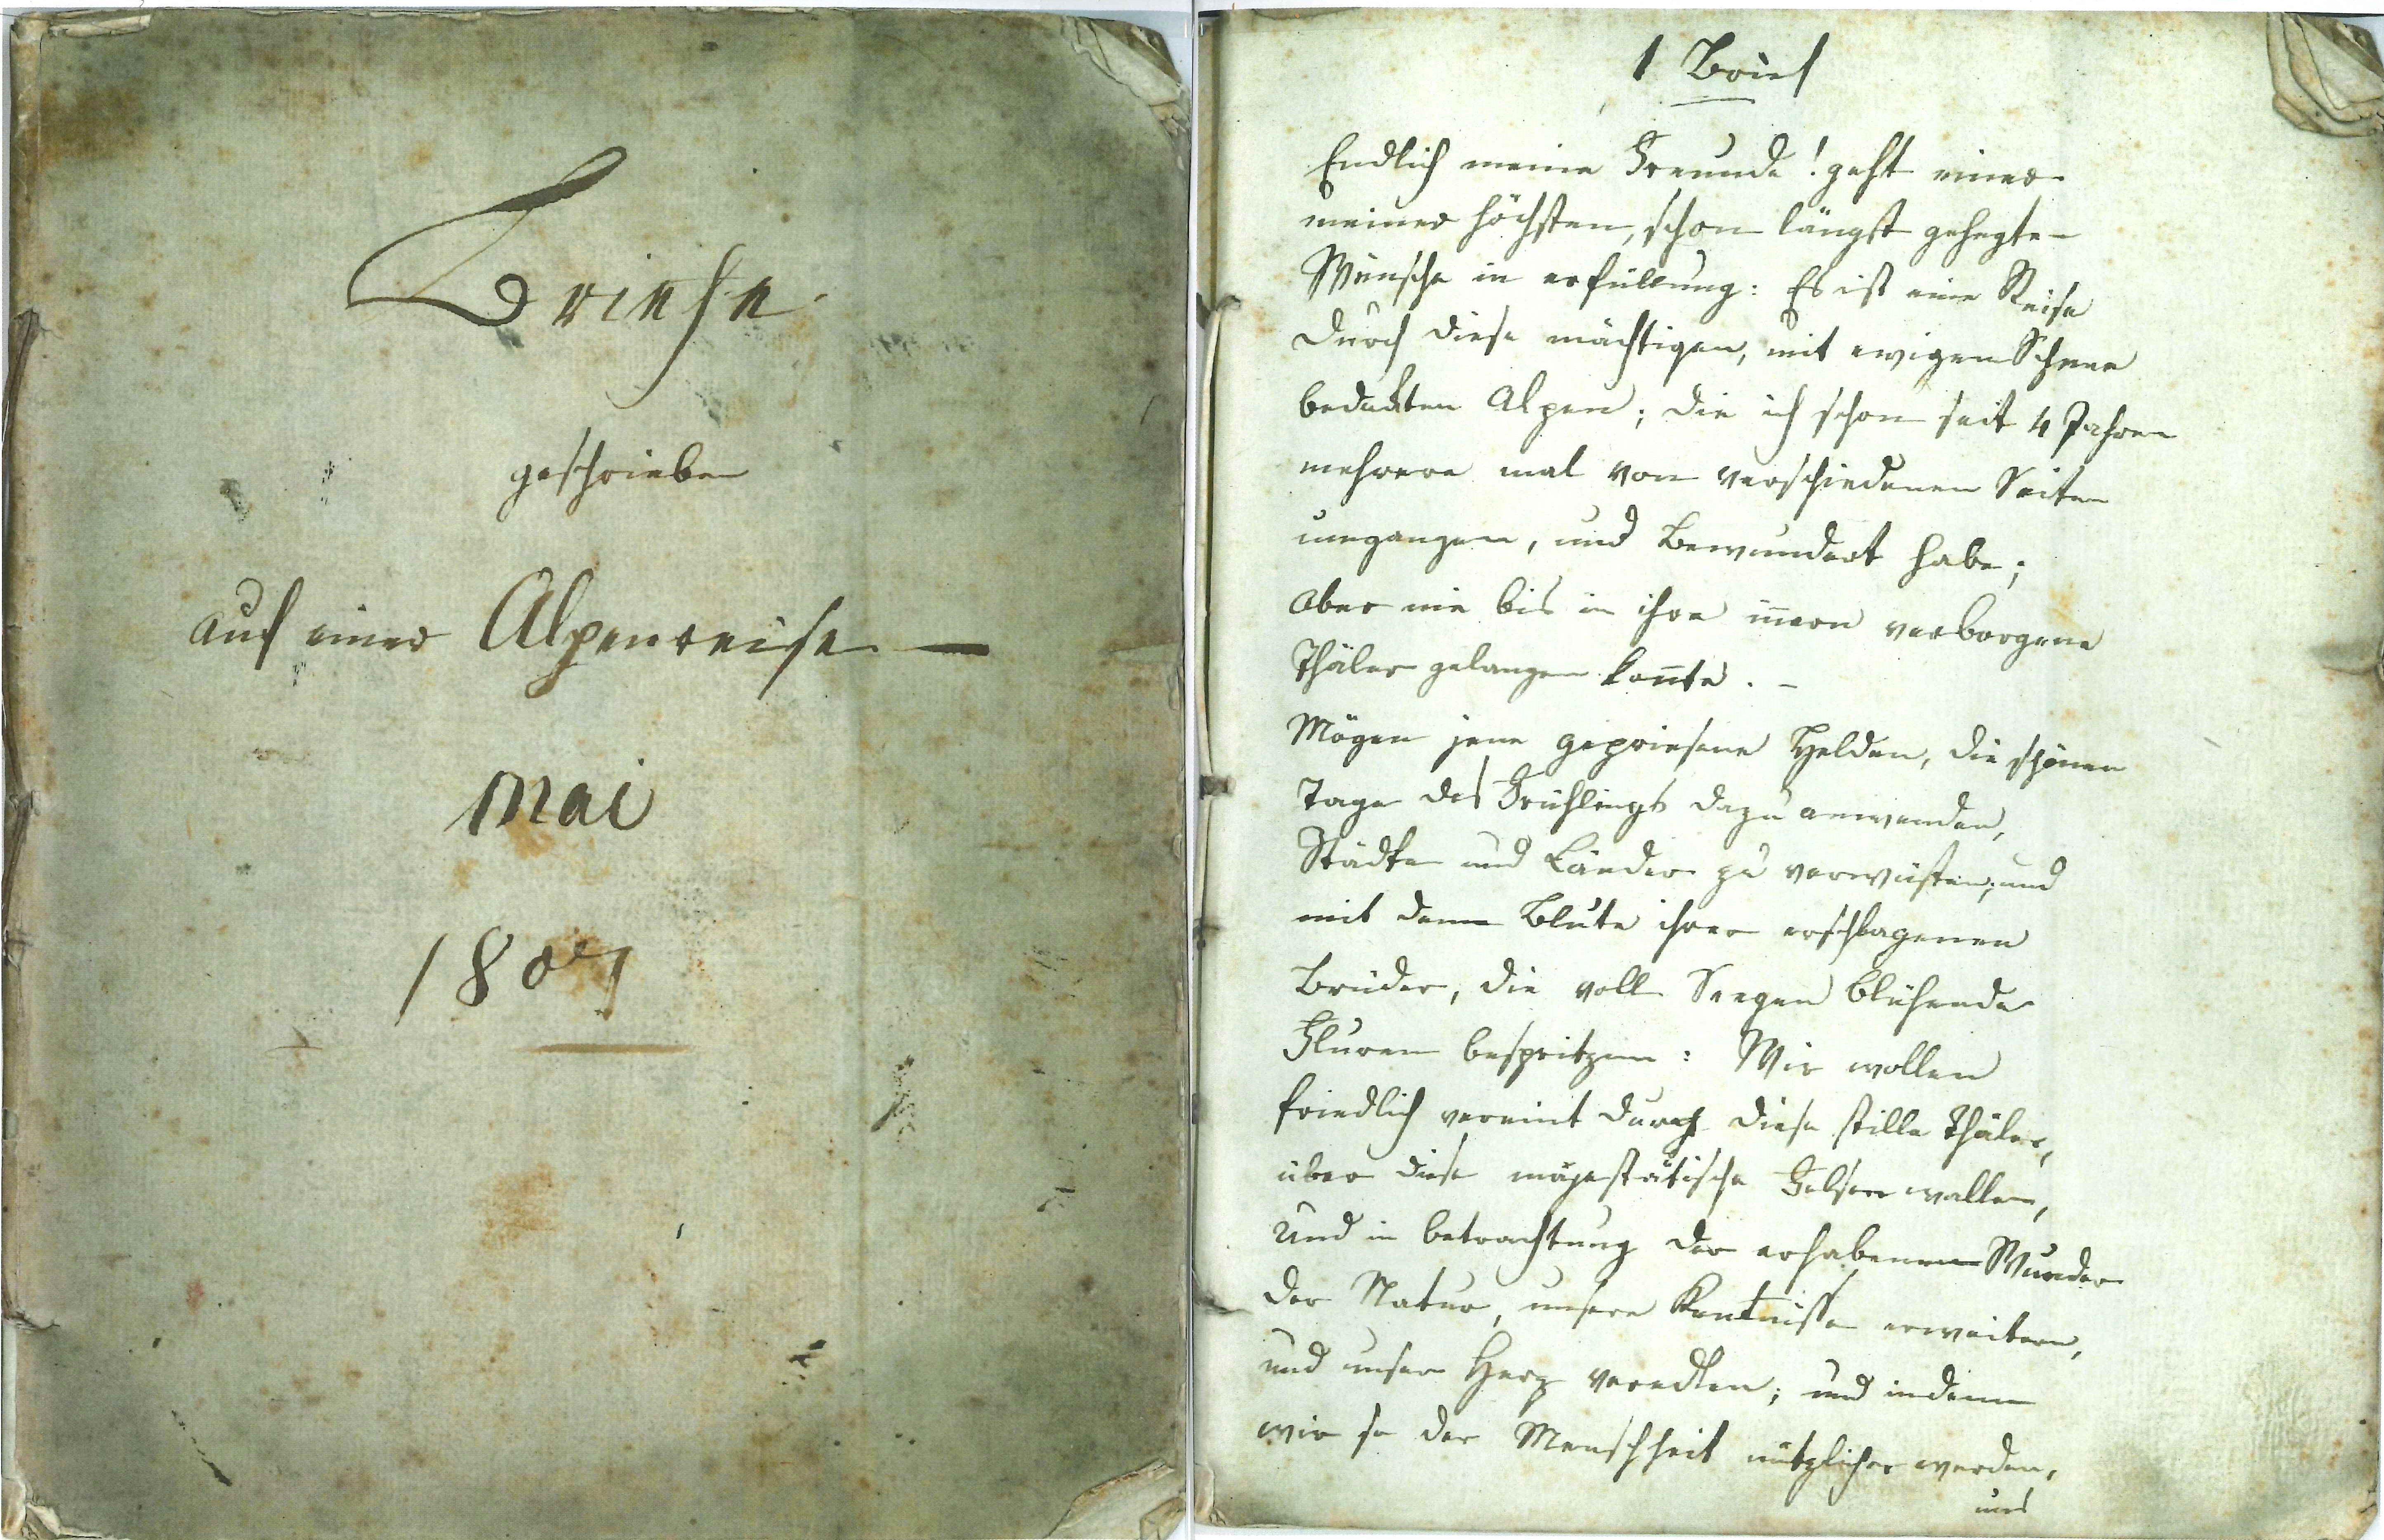 Briefe
geschrieben
auf einer Alpenreise —
Mai
1807
1 Brief
Endlich meine Freunde! geht einer
meiner höchsten, schon längst gehegten
Wünsche in erfüllung: Es ist eine Reise
durch diese mächtigen, mit ewigem Schnee
bedeckten Alpen; die ich schon seit 4 Jahren
mehrere mal von verschiedenen Seiten
umgangen, und Bewundert habe;
aber nie bis in ihre iñern verborgene
Thäler gelangen koñte. –
Mögen jene gepriesene Helden, die schönen
Tage des Frühlings dazu anwenden,
Städte und Länder zu verwüsten, und
mit dem Blute ihrer erschlagenen
Brüder, die voll Seegen blühende
Fluren bespritzen: Wir wollen
friedlich vereint durch diese stille Thäler,
über diese majestätische Felsen wallen,
und in betrachtung der erhabenen Wunder
der Natur, unsere Kentnisse erweitern,
und unser Herz veredlen; und indem
wir so der Menschheit nützlicher werden,
uns